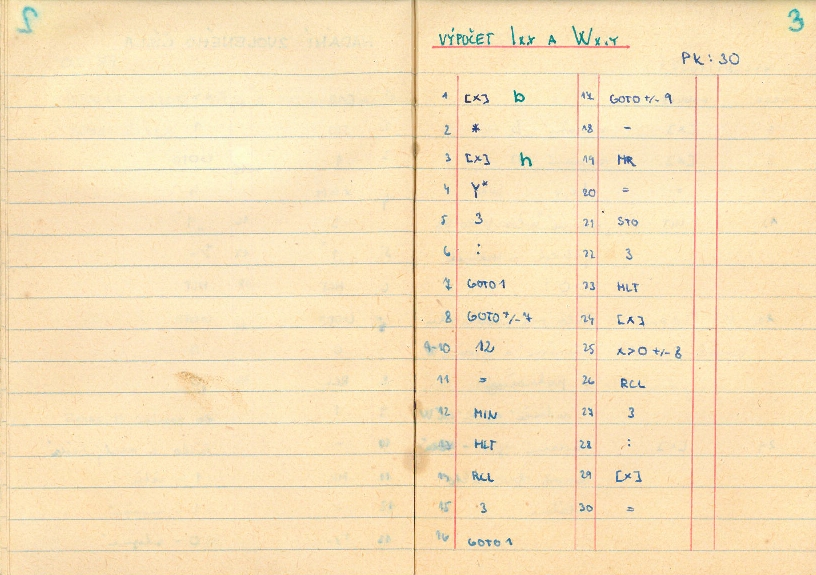 2
3
VÝPOČET Ixx A Wx,Y
PK: 30
1 [x] b
2 *
3 [x] h
4 Yx
5 3
6 :
7 GOTO 1
8 GOTO +/- 7
9-10 12
11 =
12 MIN
13 HLT
14 RCL
15 3
16 GOTO 1
17 GOTO +/- 9
18 -
19 MR
20 =
21 STO
22 3
23 HLT
24 [x]
25 x>0 +/- 8
26 RCL
27 3
28 :
29 [x]
30 =